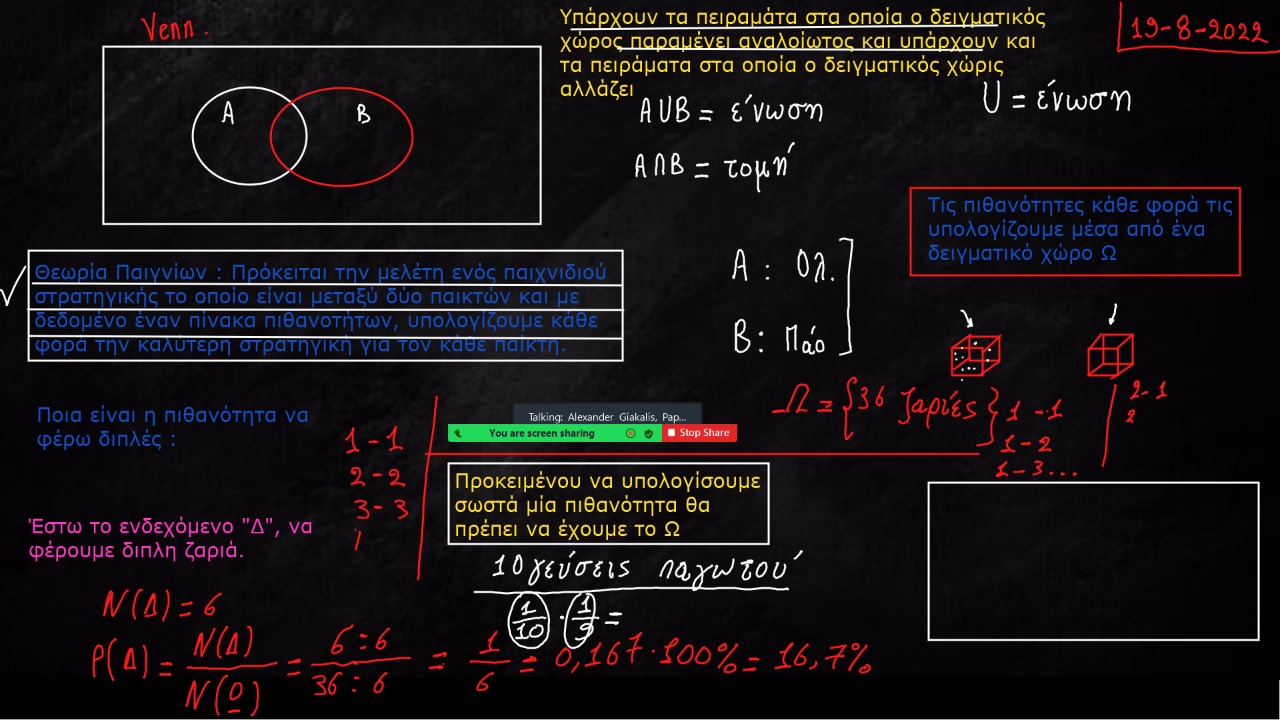 Venn.
Υπάρχουν τα πειραμάτα στα οποία ο δειγματικός
χώρος παραμένει αναλοίωτος και υπάρχουν και
τα πειράματα στα οποία ο δειγματικός χώρις
αλλάζει
19-8-2022
A
B
A∪B = ένωση
∪ = ένωση
A∩B = τομή
Τις πιθανότητες κάθε φορά τις
υπολογίζουμε μέσα από ένα
δειγματικό χώρο Ω
Θεωρία Παιγνίων : Πρόκειται την μελέτη ενός παιχνιδιού
στρατηγικής το οποίο είναι μεταξύ δύο παικτών και με
δεδομένο έναν πίνακα πιθανοτήτων, υπολογίζουμε κάθε
φορά την καλύτερη στρατηγική για τον κάθε παίκτη.
A : Ολ.
B : Πάο
Ποια είναι η πιθανότητα να
φέρω διπλές :
1-1
2-2
3-3
Talking: Alexander Giakalis, Pap...
You are screen sharing
Stop Share
Ω = {36 ζαριές}
1-1
1-2
1-3...
2-1
2
Προκειμένου να υπολογίσουμε
σωστά μία πιθανότητα θα
πρέπει να έχουμε το Ω
Έστω το ενδεχόμενο "Δ", να
φέρουμε διπλη ζαριά.
10 γεύσεις παγωτού
1/10 · 1/9 =
N(Δ) = 6
P(Δ) = N(Δ)/N(Ω) = 6:6/36:6 = 1/6 = 0,167·100% = 16,7%